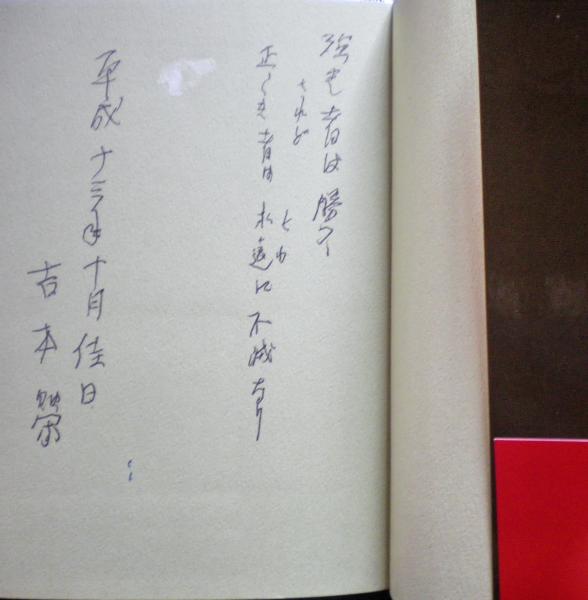 強き者は勝つ
されど
正しき者は永遠に不滅なり
とわ
平成十三年十月佳日
吉本